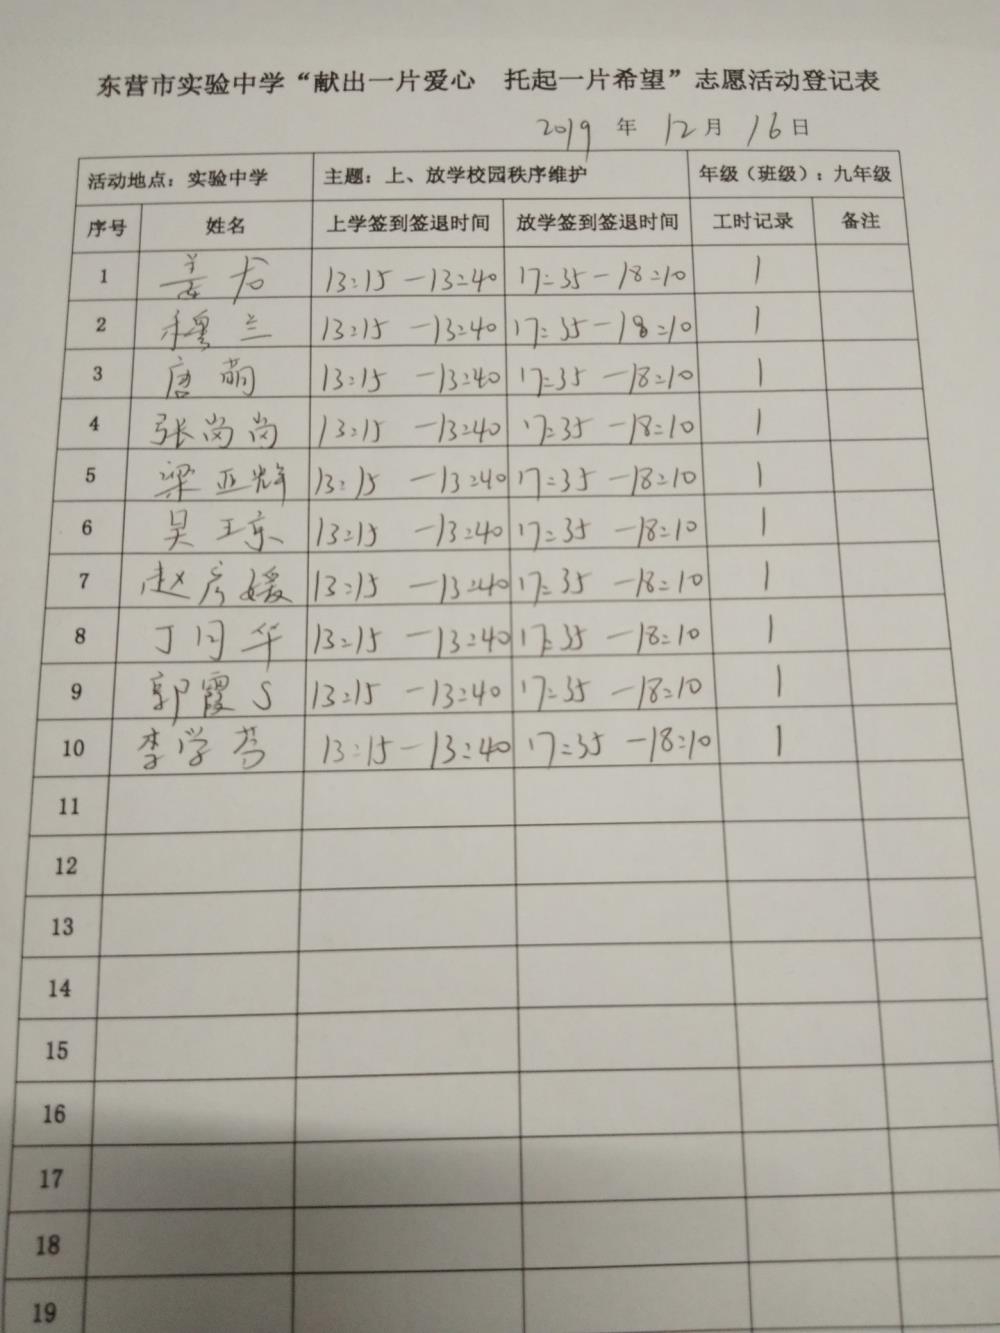 东营市实验中学“献出一片爱心 托起一片希望”志愿活动登记表
2019 年 12 月 16 日
活动地点：实验中学 主题：上、放学校园秩序维护 年级（班级）：九年级
序号 姓名 上学签到签退时间 放学签到签退时间 工时记录 备注
1 姜龙 13:15-13:40 17:35-18:10 1
2 穆兰 13:15-13:40 17:35-18:10 1
3 唐萌 13:15-13:40 17:35-18:10 1
4 张岗岗 13:15-13:40 17:35-18:10 1
5 梁亚辉 13:15-13:40 17:35-18:10 1
6 吴玉京 13:15-13:40 17:35-18:10 1
7 赵彦媛 13:15-13:40 17:35-18:10 1
8 丁同华 13:15-13:40 17:35-18:10 1
9 郭霞 13:15-13:40 17:35-18:10 1
10 李学芬 13:15-13:40 17:35-18:10 1
11
12
13
14
15
16
17
18
19